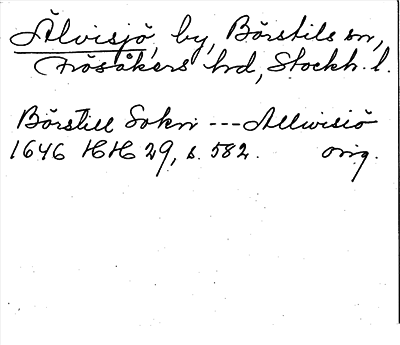 Älvisjö, by, Börstils sn,
Frösåkers hd, Stockh. l.
Börstill Sokn --- Allwisiö
1646 HH 29, s. 582. orig.